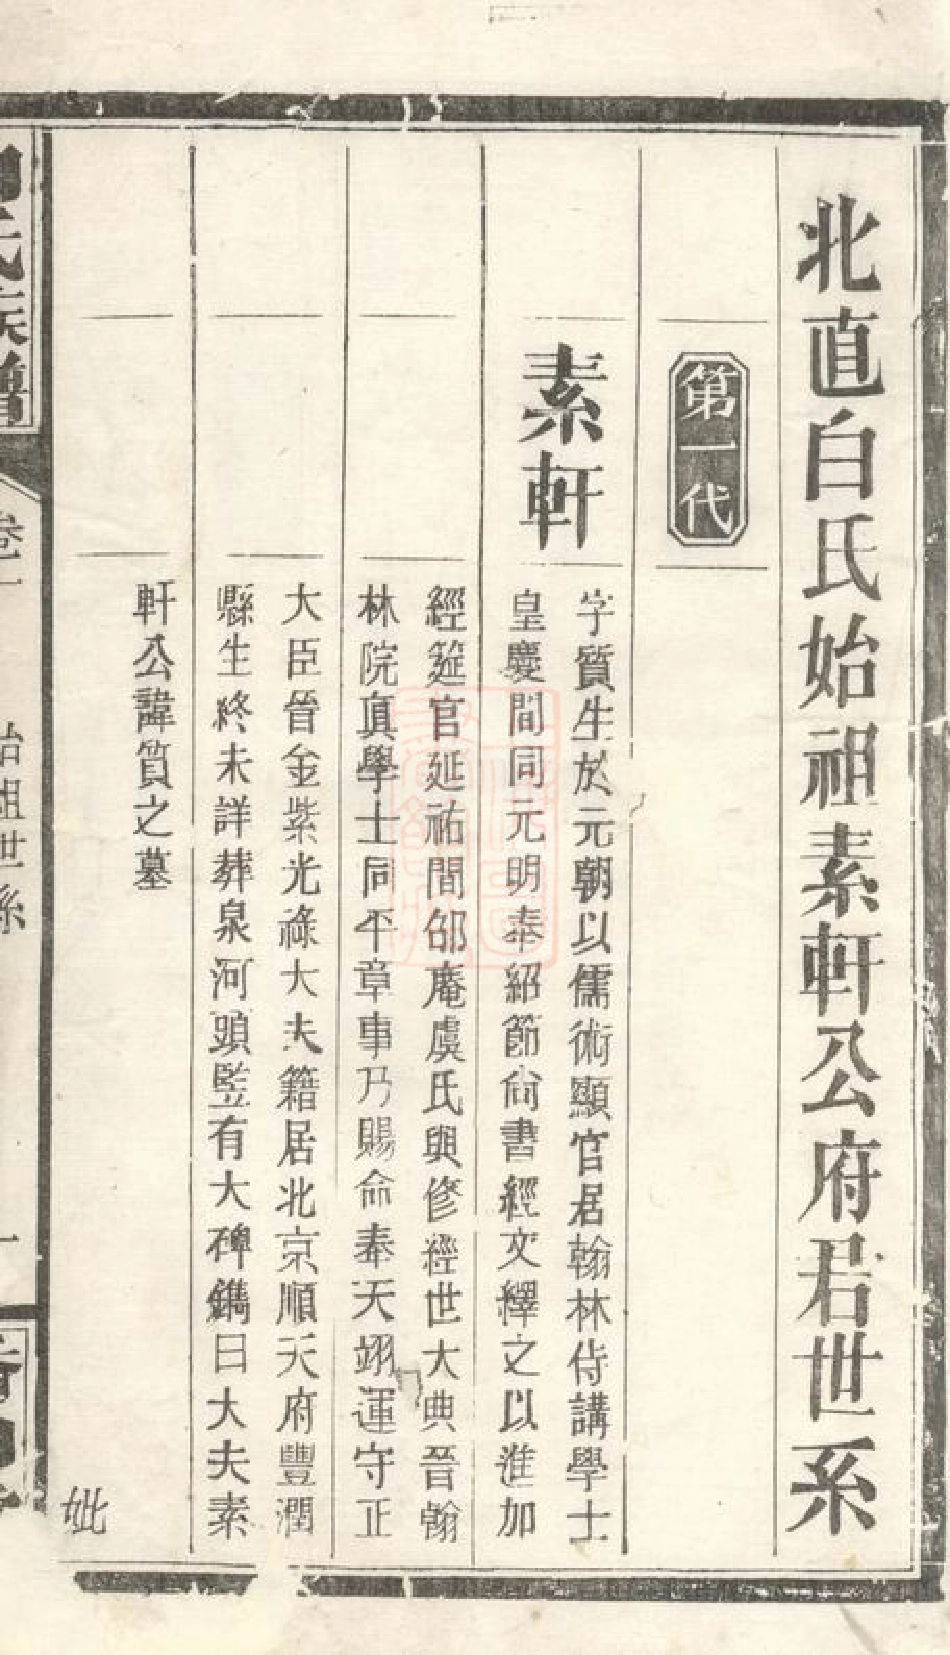 北直白氏始祖素軒公府君世系
第一代
素軒
字質生於元朝以儒術顯官居翰林侍講學士
皇慶間同元明奉紹節尙書經文繹之以進加
經筵官延祐間邵庵虞氏與修經世大典晉翰
林院眞學士同平章事乃賜命奉天翊運守正
大臣晉金紫光祿大夫籍居北京順天府豐潤
縣生終未詳葬泉河頭監有大碑鐫曰大夫素
軒公諱質之墓
妣
氏族譜
卷一
始祖世系
一